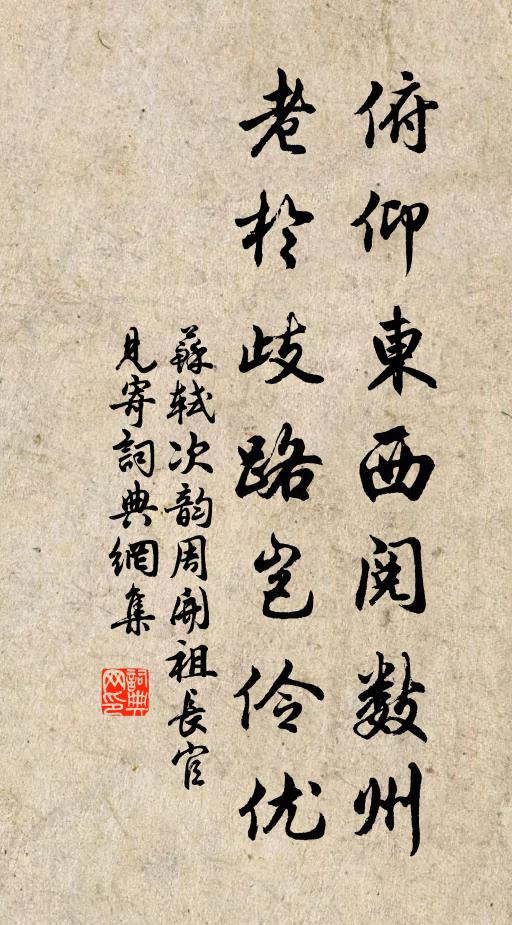 俯仰東西閱數州
老於歧路豈伶优
蘇轼次韵周開祖長官
見寄詞典網集
詞典网印